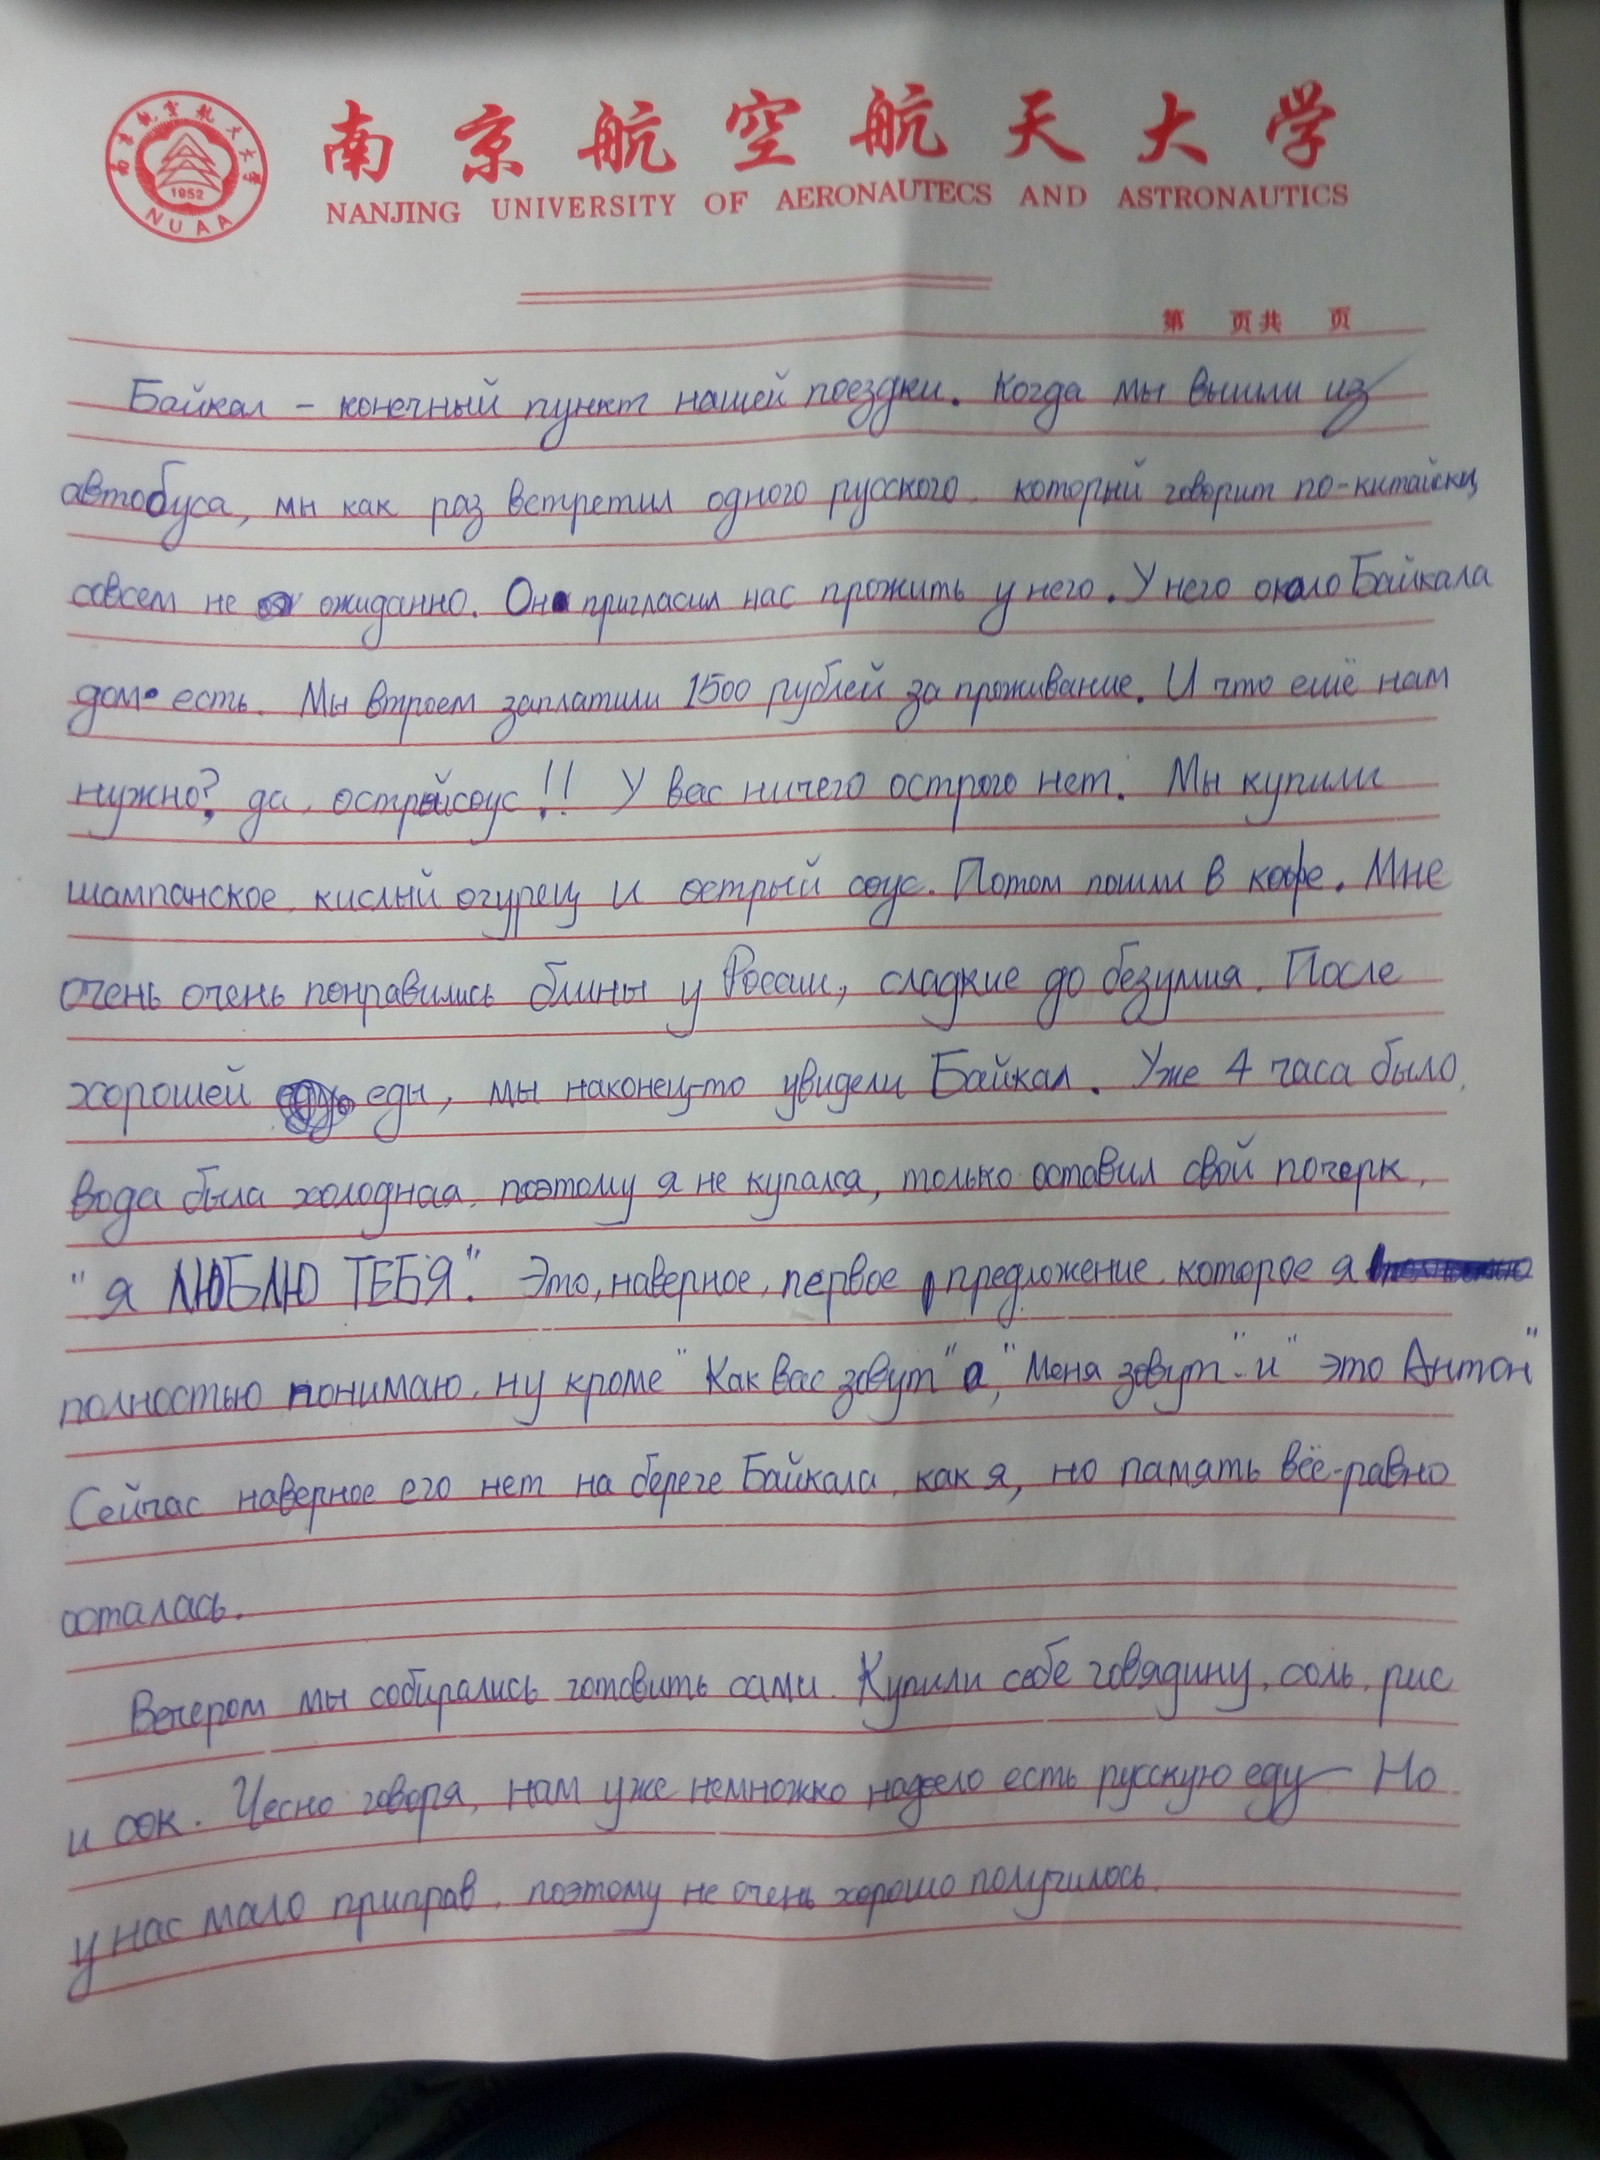 南京航空航天大学
NANJING UNIVERSITY OF AERONAUTECS AND ASTRONAUTICS
1952
NUAA
第 页共 页
Байкал – конечный пункт нашей поездки. Когда мы вышли из
автобуса, мы как раз встретил одного русского, который говорит по-китайски,
совсем не ожиданно. Он пригласил нас прожить у него. У него около Байкала
дом есть. Мы втроем заплатили 1500 рублей за проживание. И что ешё нам
нужно? да, острыйсоус!! У вас ничего острого нет. Мы купили
шампанское, кислый огурец и острый соус. Потом пошли в кафе. Мне
очень очень понравились блины у России, сладкие до безумия. После
хорошей еды, мы наконец-то увидели Байкал. Уже 4 часа было,
вода была холодная, поэтому я не купался, только оставил свой почерк,
"я ЛЮБЛЮ ТЕБЯ". Это, наверное, первое предложение, которое я
полностью понимаю, ну кроме "Как вас зовут" а, "Меня зовут" и "это Антон"
Сейчас наверное его нет на береге Байкала, как я, но память всё-равно
осталась.
Вечером мы собирались готовить сами. Купили себе говядину, соль, рис
и сок. Чесно говоря, нам уже немножко надоело есть русскую еду— Но
у нас мало приправ, поэтому не очень хорошо получилось.